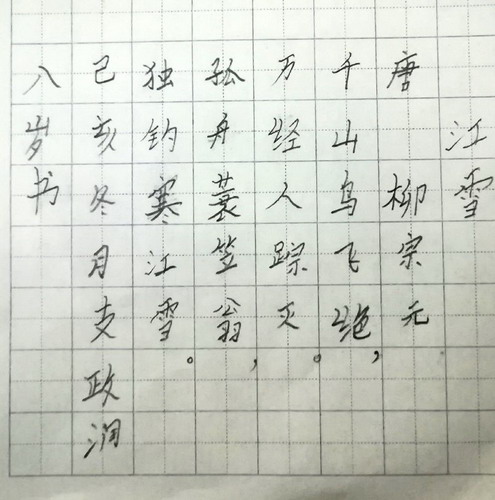 江雪
唐 柳宗元
千山鸟飞绝，
万经人踪灭。
孤舟蓑笠翁，
独钓寒江雪。
己亥冬月支政润
八岁书